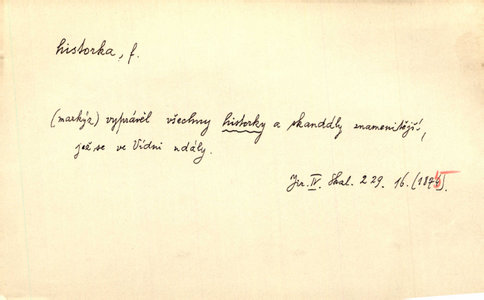 historka, f.
(markýz) vyprávěl všechny historky a skandály znamenitější,
jež se ve Vídni udály.
Jir. IV. Skal. 229. 16. (187